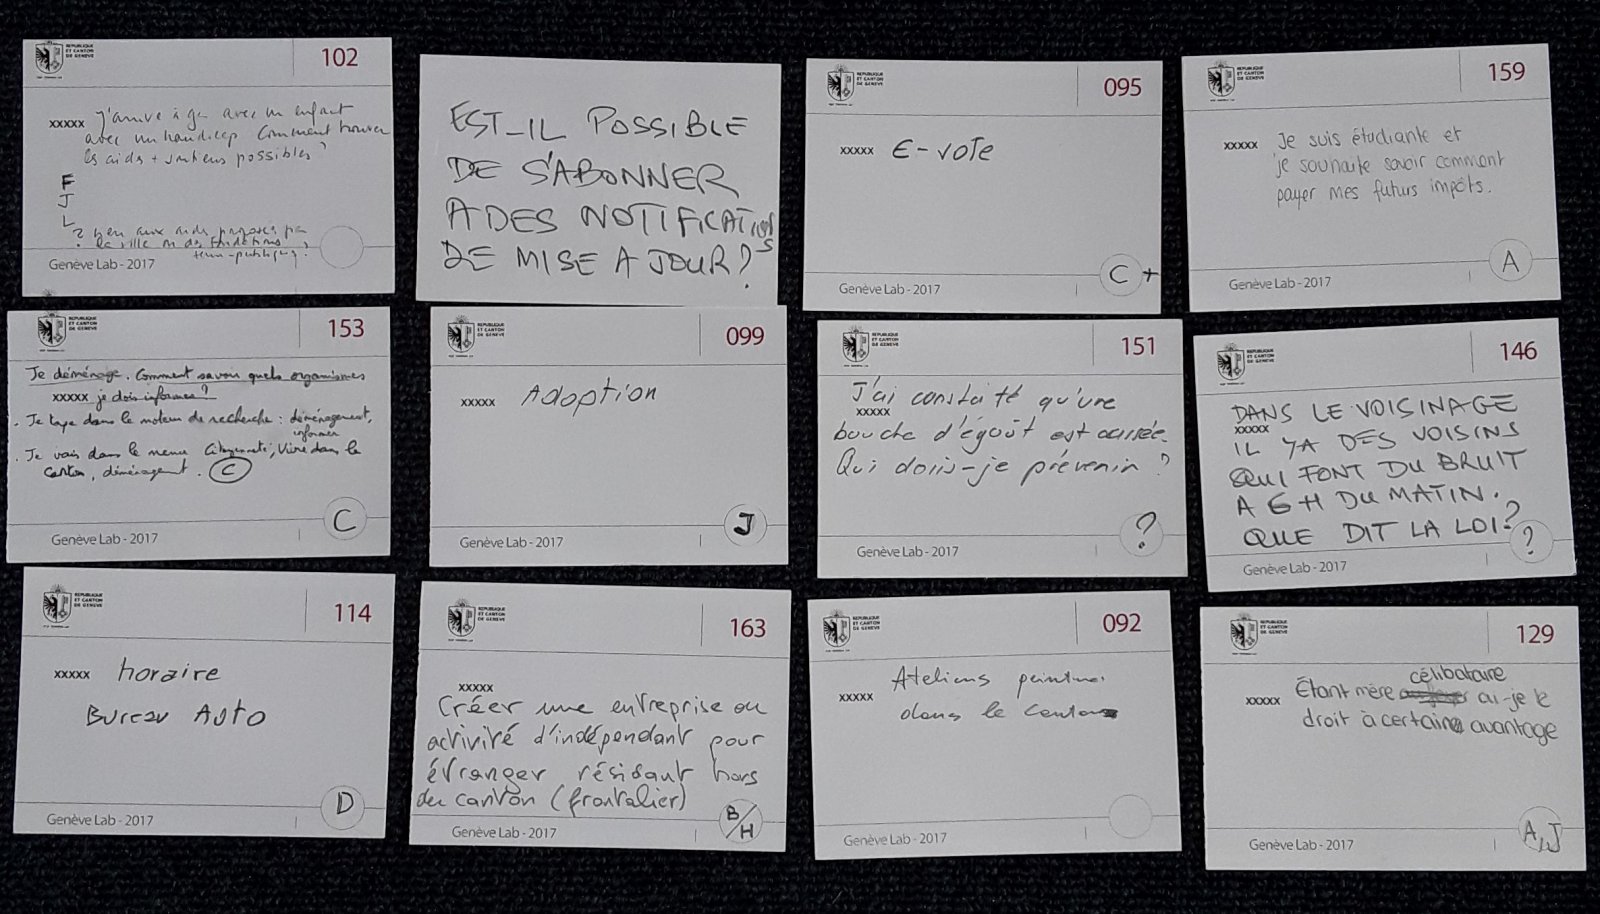 REPUBLIQUE
ET CANTON
DE GENEVE
102
xxxxx j'arrive à ge avec un enfant
avec un handicap Comment trouver
les aides + soutiens possibles?
F
J
L
? aux aides proposées par
la ville ou des fondations
Genève Lab - 2017
EST-IL POSSIBLE
DE S'ABONNER
A DES NOTIFICATIONS
DE MISE A JOUR?
REPUBLIQUE
ET CANTON
DE GENEVE
095
xxxxx E-vote
C +
Genève Lab - 2017
REPUBLIQUE
ET CANTON
DE GENEVE
159
xxxxx Je suis étudiante et
je souhaite savoir comment
payer mes futurs impôts.
A
Genève Lab - 2017
REPUBLIQUE
ET CANTON
DE GENEVE
153
Je déménage. Comment savoir quels organismes
xxxxx je dois informer?
. Je tape dans le moteur de recherche : déménagement,
informer
. Je vais dans le menu Citoyenneté, Vivre dans le
canton, déménagement. C
C
Genève Lab - 2017
REPUBLIQUE
ET CANTON
DE GENEVE
099
xxxxx Adoption
J
Genève Lab - 2017
REPUBLIQUE
ET CANTON
DE GENEVE
151
J'ai constaté qu'une
xxxxx
bouche d'égoût est cassée.
Qui dois-je prévenir ?
?
Genève Lab - 2017
REPUBLIQUE
ET CANTON
DE GENEVE
146
DANS LE VOISINAGE
xxxxx
IL YA DES VOISINS
QUI FONT DU BRUIT
A 6H DU MATIN.
QUE DIT LA LOI?
?
Genève Lab - 2017
REPUBLIQUE
ET CANTON
DE GENEVE
114
xxxxx horaire
Bureau Auto
D
Genève Lab - 2017
REPUBLIQUE
ET CANTON
DE GENEVE
163
xxxxx
Créer une entreprise ou
activité d'indépendant pour
étranger résidant hors
du canton (frontalier)
B/H
Genève Lab - 2017
REPUBLIQUE
ET CANTON
DE GENEVE
092
xxxxx Ateliers peinture
dans le canton
Genève Lab - 2017
REPUBLIQUE
ET CANTON
DE GENEVE
129
célibataire
xxxxx Étant mère ai-je le
droit à certain avantage
A, J
Genève Lab - 2017